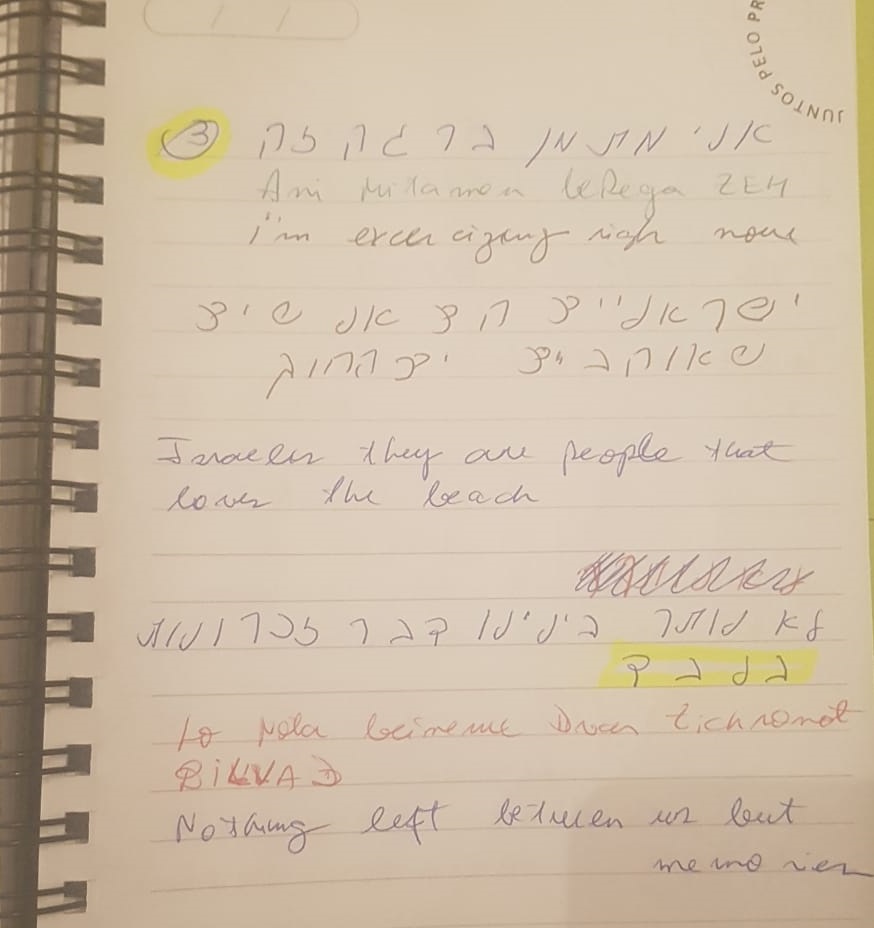 JUNTOS PELO PR
3 אני מתמן ברגה זה
Ani Mitamon beRega ZEH
i'm excercizing righ now
ישראליים הם אנשים
שאוהבים
Israelis they are people that
loves the beach
לא נותר בינינו דבר זכרונות
בלבד
lo Nota beineme Dvar Zichronot
BiLVAD
Nothing left between us but
memories